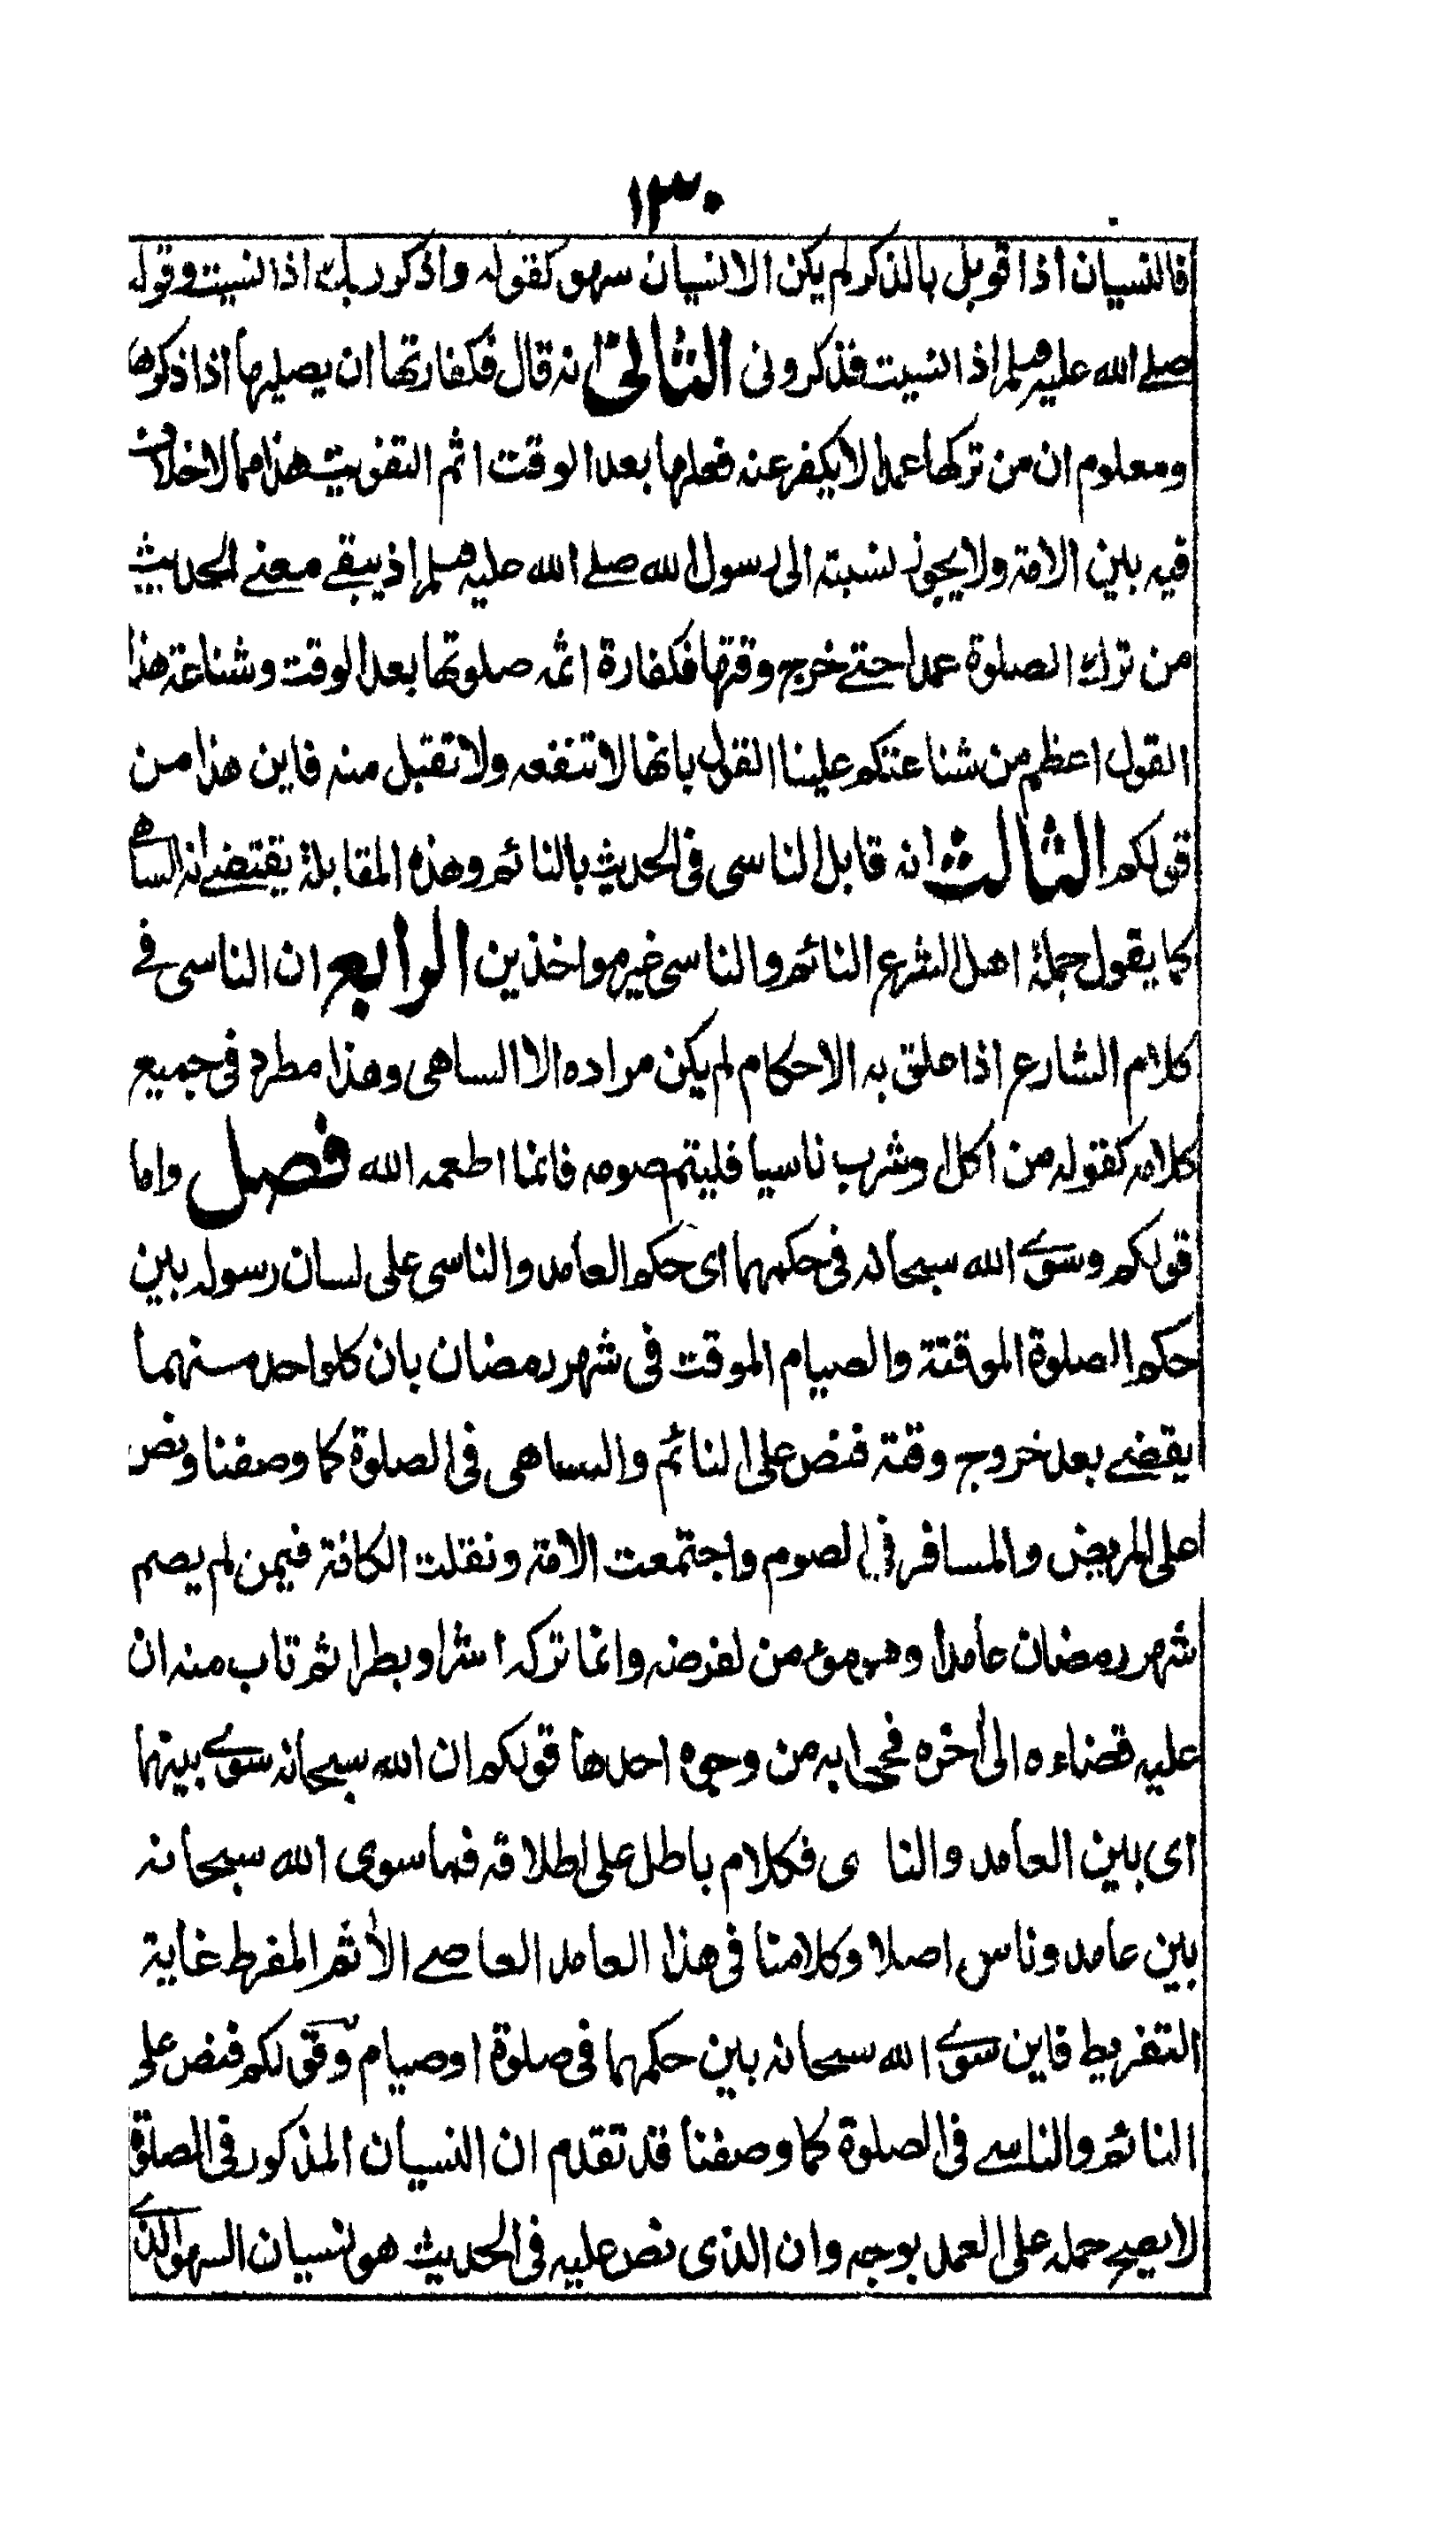 ١٣٠
فالنسيان اذا قوبل بالذكر لم يكن الا نسيان سهو كقوله واذكر ربك اذا نسيت وقوله
صلى الله عليه وسلم اذا نسيت فذكروني الثاني انه قال فكفارتها ان يصليها اذا ذكرها
ومعلوم ان من تركها عمدا لا يكفر عنه فعلها بعد الوقت اثم التفويت هذا مما لا خلاف
فيه بين الامة ولا يجوز نسبته الى رسول الله صلى الله عليه وسلم اذ يبقى معنى الحديث
من ترك الصلوة عمدا حتى خرج وقتها فكفارة اثمه صلوتها بعد الوقت وشناعة هذا
القول اعظم من شناعتكم علينا القول بانها لا تنفعه ولا تقبل منه فاين هذا من
قولكم الثالث انه قابل الناسى فى الحديث بالنائم وهذه المقابلة يقتضے انه الساهى
كما يقول جملة اهل الشرع النائم والناسى غير مواخذين الرابع ان الناسى فے
كلام الشارع اذا علق به الاحكام لم يكن مراده الا الساهى وهذا مطرد فى جميع
كلامه كقوله من اكل او شرب ناسيا فليتم صومه فانما اطعمه الله فصل واما
قولكم وسوى الله سبحانه فى حكمهما اى حكم العامد والناسى على لسان رسوله بين
حكم الصلوة الموقتة والصيام الموقت فى شهر رمضان بان كلواحد منهما
يقضے بعد خروج وقته فنص على النائم والساهى فى الصلوة كما وصفنا ونص
على المريض والمسافر فى الصوم واجتمعت الامة ونقلت الكافة فيمن لم يصم
شهر رمضان عامدا وهو مومن لفرضه وانما تركه اشرا وبطرا ثم تاب منه ان
عليه قضاءه الى اخره فجوابه من وجوه احدها قولكم ان الله سبحانه سوى بينهما
اى بين العامد والنا ى فكلام باطل على اطلاقه فما سوى الله سبحانه
بين عامد وناس اصلا وكلامنا فى هذا العامد العاصے الاٰثم المفرط غاية
التفريط فاين سوى الله سبحانه بين حكمهما فى صلوة او صيام وقولكم فنص على
النائم والناسے فى الصلوة كما وصفنا قد تقدم ان النسيان المذكور فى الصلوة
لا يصح حمله على العمد بوجه وان الذى نص عليه فى الحديث هو نسيان السهو الذى